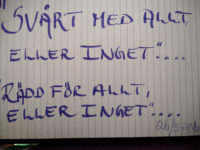 "SVÅRT MED ALLT,
ELLER INGET"....
"RÄDD FÖR ALLT,
ELLER INGET"....